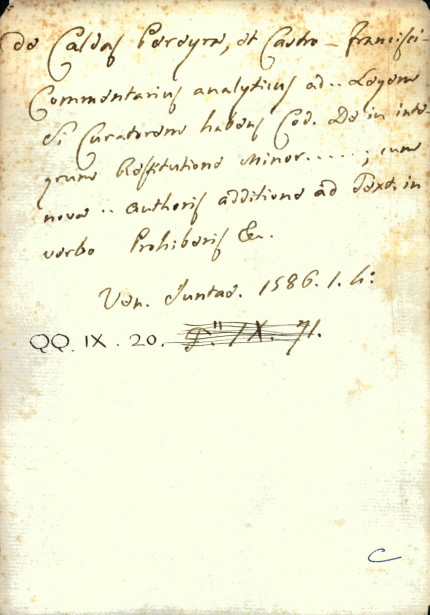 de Caldas Pereyra, et Castro - Francisci -
Commentarius analyticus ad .. Legem
Si Curatorem habens Cod. De in inte-
grum Restitutione Minor.....; cum
nova .. Authoris additione ad Text. in
verbo Prohiberis &c.
Ven. Juntae. 1586. 1. 4:
QQ. IX. 20. P." IX. 71.
C